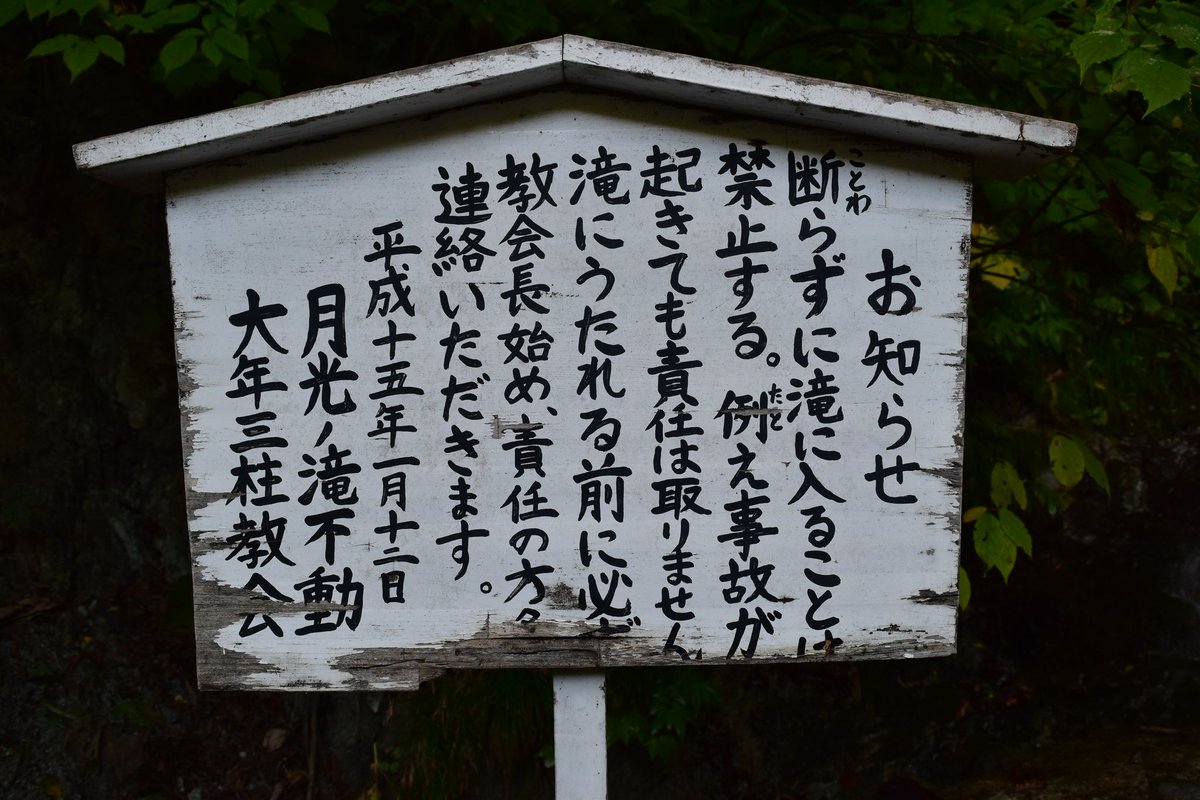 お知らせ
断らずに滝に入ることは
ことわ
禁止する。例え事故が
たと
起きても責任は取りません
滝にうたれる前に必ず
教会長始め、責任の方々
連絡いただきます。
平成十五年一月十二日
月光ノ滝不動
大年三柱教会